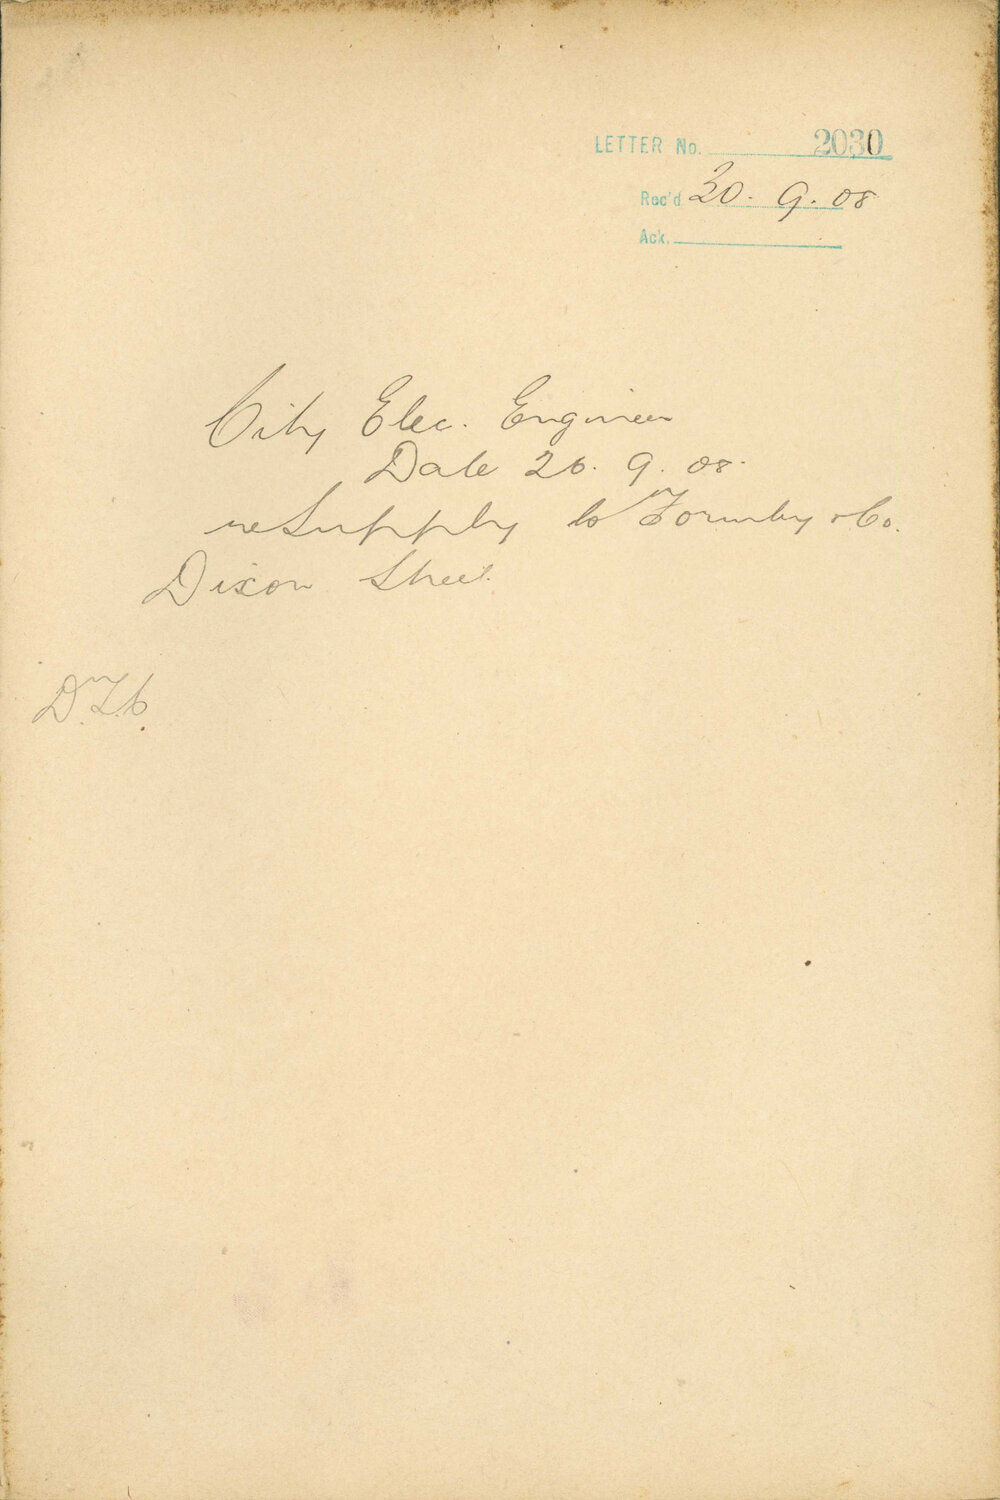 LETTER No. 2030
Rec'd 30. 9. 08
Ack.
City Elec. Engineer
Date 26. 9. 08.
re Supply to Formby & Co.
Dixon Street.